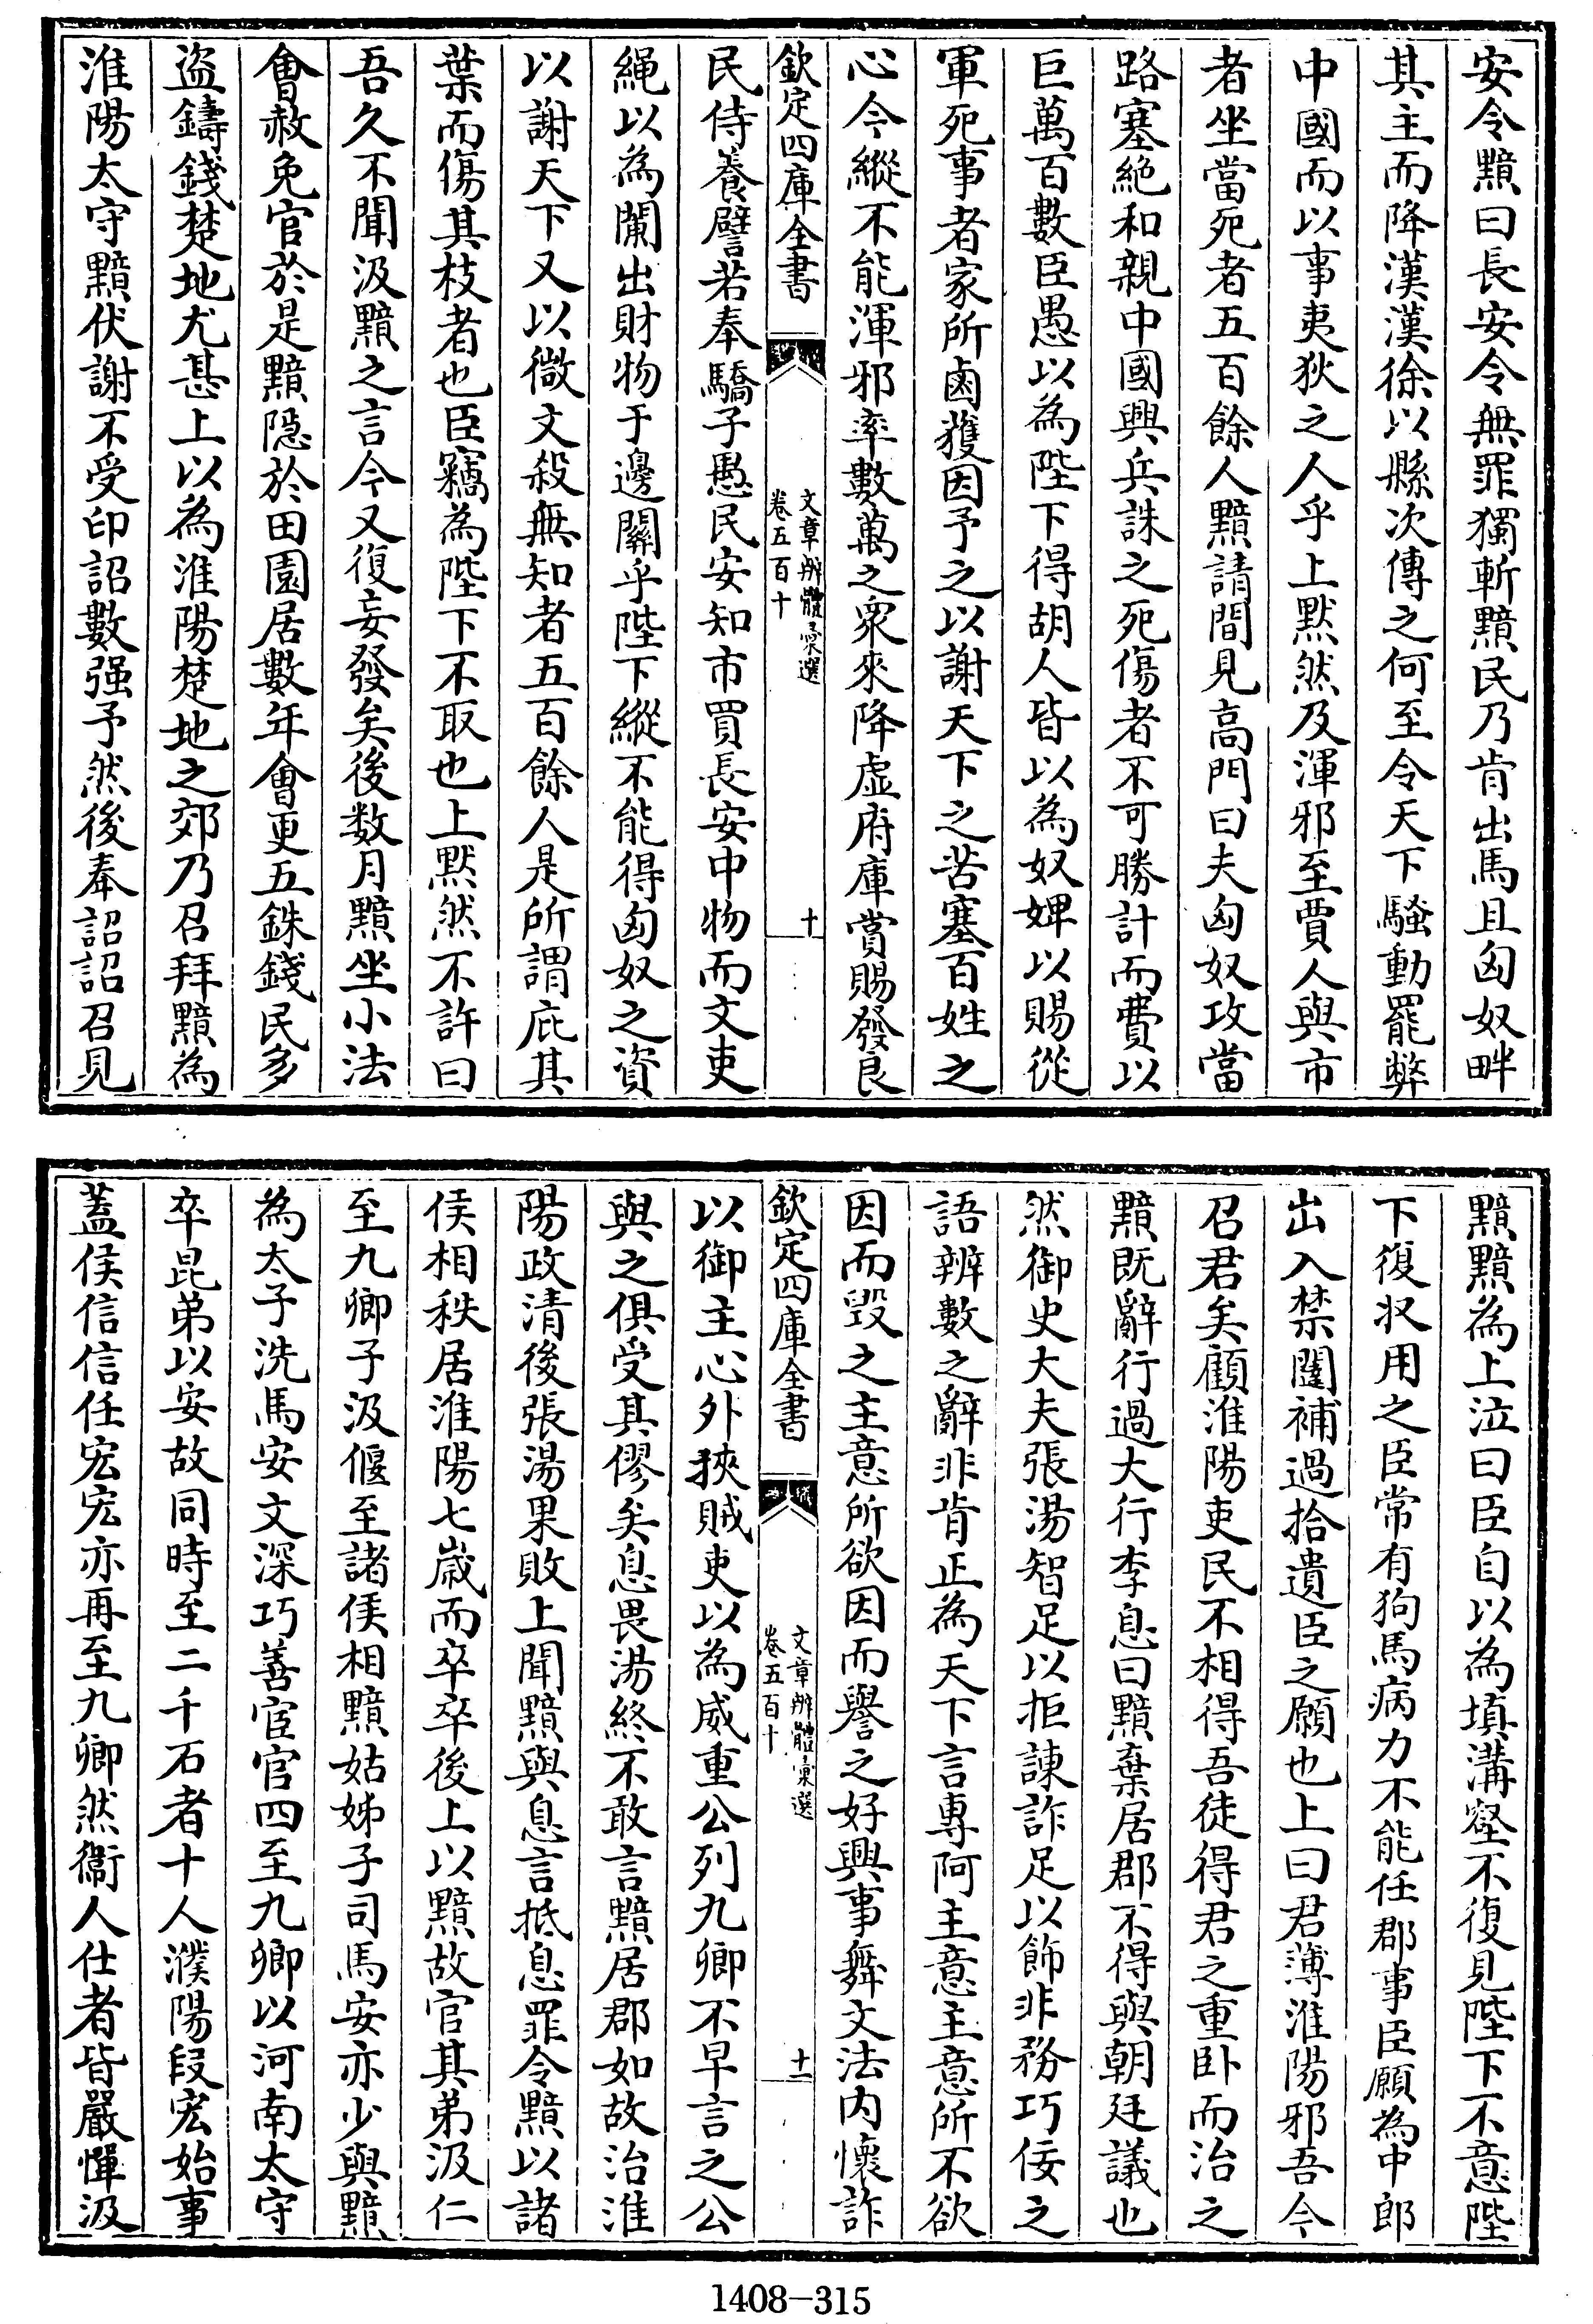 安令黯曰長安令無罪獨斬黯民乃肯出馬且匈奴畔
其主而降漢漢徐以縣次傳之何至令天下騷動罷弊
中國而以事夷狄之人乎上默然及渾邪至賈人與市
者坐當死者五百餘人黯請間見高門曰夫匈奴攻當
路塞絶和親中國興兵誅之死傷者不可勝計而費以
巨萬百數臣愚以為陛下得胡人皆以為奴婢以賜從
軍死事者家所鹵獲因予之以謝天下之苦塞百姓之
心今縱不能渾邪率數萬之衆來降虚府庫賞賜發良
欽定四庫全書
文章辨體彚選
卷五百十
十
民侍養譬若奉驕子愚民安知市買長安中物而文吏
繩以為闌出財物于邊關乎陛下縱不能得匈奴之資
以謝天下又以微文殺無知者五百餘人是所謂庇其
葉而傷其枝者也臣竊為陛下不取也上默然不許曰
吾久不聞汲黯之言今又復妄發矣後数月黯坐小法
會赦免官於是黯隱於田園居數年會更五銖錢民多
盜鑄錢楚地尤甚上以為淮陽楚地之郊乃召拜黯為
淮陽太守黯伏謝不受印詔數强予然後奉詔詔召見
黯黯為上泣曰臣自以為填溝壑不復見陛下不意陛
下復收用之臣常有狗馬病力不能任郡事臣願為中郎
出入禁闥補過拾遺臣之願也上曰君薄淮陽邪吾今
召君矣顧淮陽吏民不相得吾徒得君之重卧而治之
黯既辭行過大行李息曰黯棄居郡不得與朝廷議也
然御史大夫張湯智足以拒諫詐足以飾非務巧佞之
語辨數之辭非肯正為天下言專阿主意主意所不欲
因而毁之主意所欲因而譽之好興事舞文法内懷詐
欽定四庫全書
文章辨體彚選
卷五百十
十一
以御主心外挾賊吏以為威重公列九卿不早言之公
與之俱受其僇矣息畏湯終不敢言黯居郡如故治淮
陽政清後張湯果敗上聞黯與息言抵息罪令黯以諸
侯相秩居淮陽七嵗而卒卒後上以黯故官其弟汲仁
至九卿子汲偃至諸侯相黯姑姊子司馬安亦少與黯
為太子洗馬安文深巧善宦官四至九卿以河南太守
卒昆弟以安故同時至二千石者十人濮陽段宏始事
蓋侯信信任宏宏亦再至九卿然衞人仕者皆嚴憚汲
1408-315